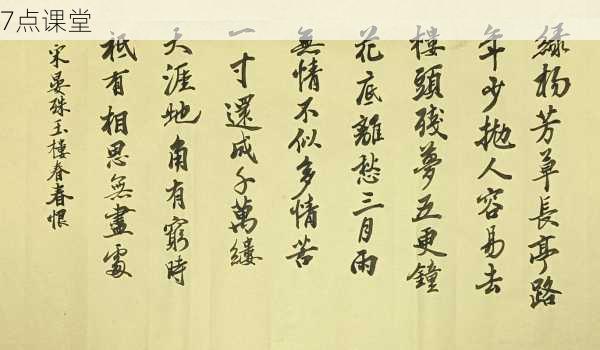 7点课堂
綠楊芳草長亭路
年少拋人容易去
樓頭殘夢五更鐘
花底離愁三月雨
無情不似多情苦
一寸還成千萬縷
天涯地角有窮時
祗有相思無盡處
宋晏殊玉樓春春恨